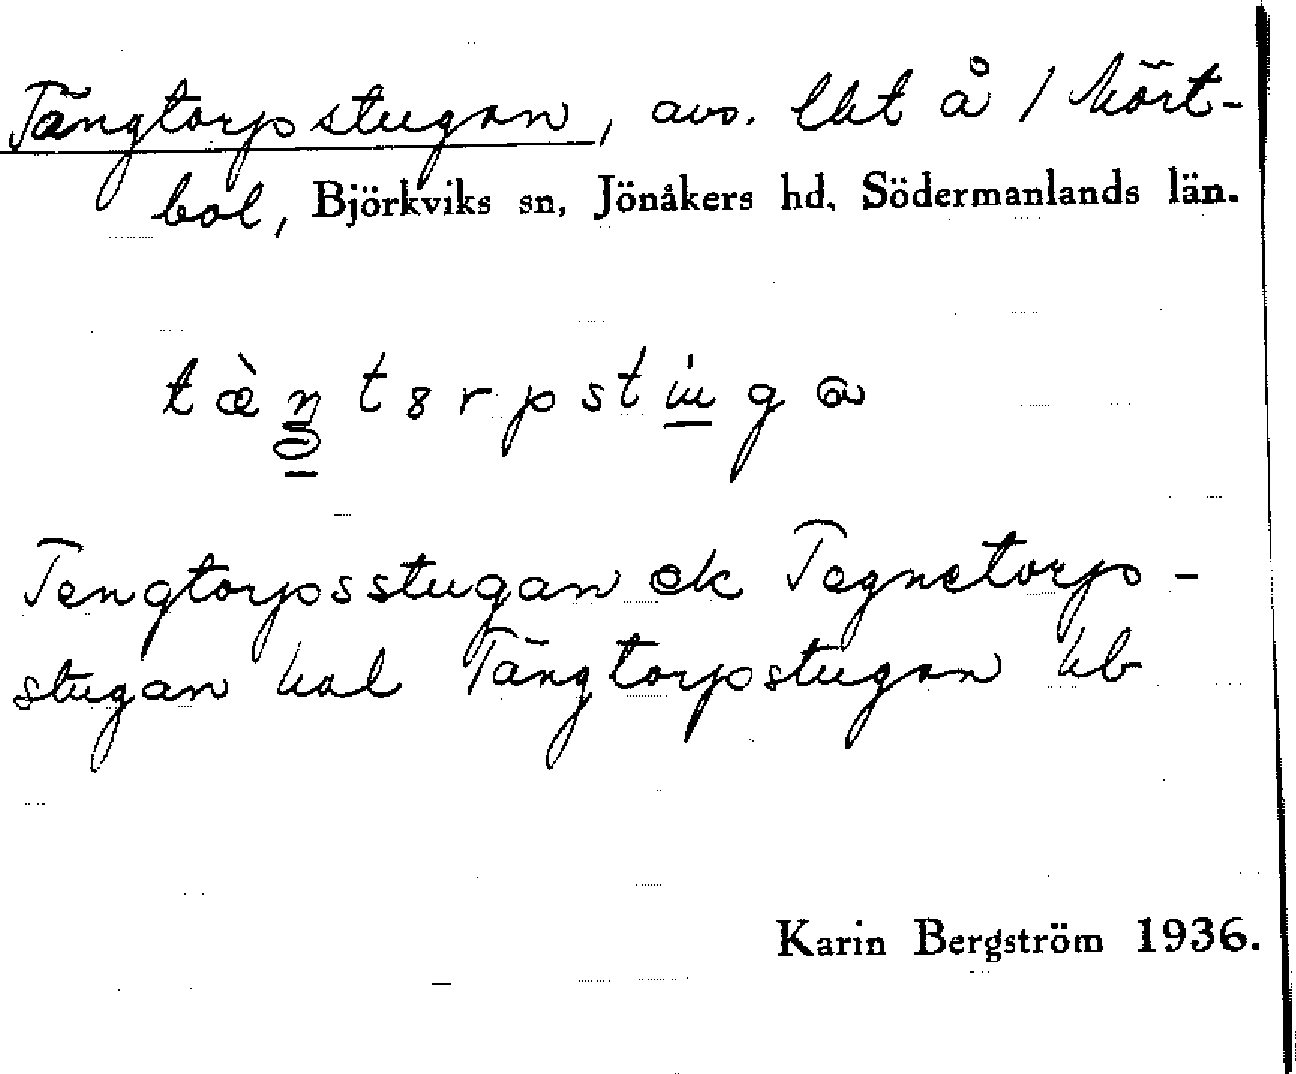 Tängtorpstugan, avs. lht å 1 Hört-
bol, Björkviks sn, Jönåkers hd, Södermanlands län.
Tengtorpsstugan ek Tegnetorp-
stugan hal Tängtorpstugan hb
Karin Bergström 1936.